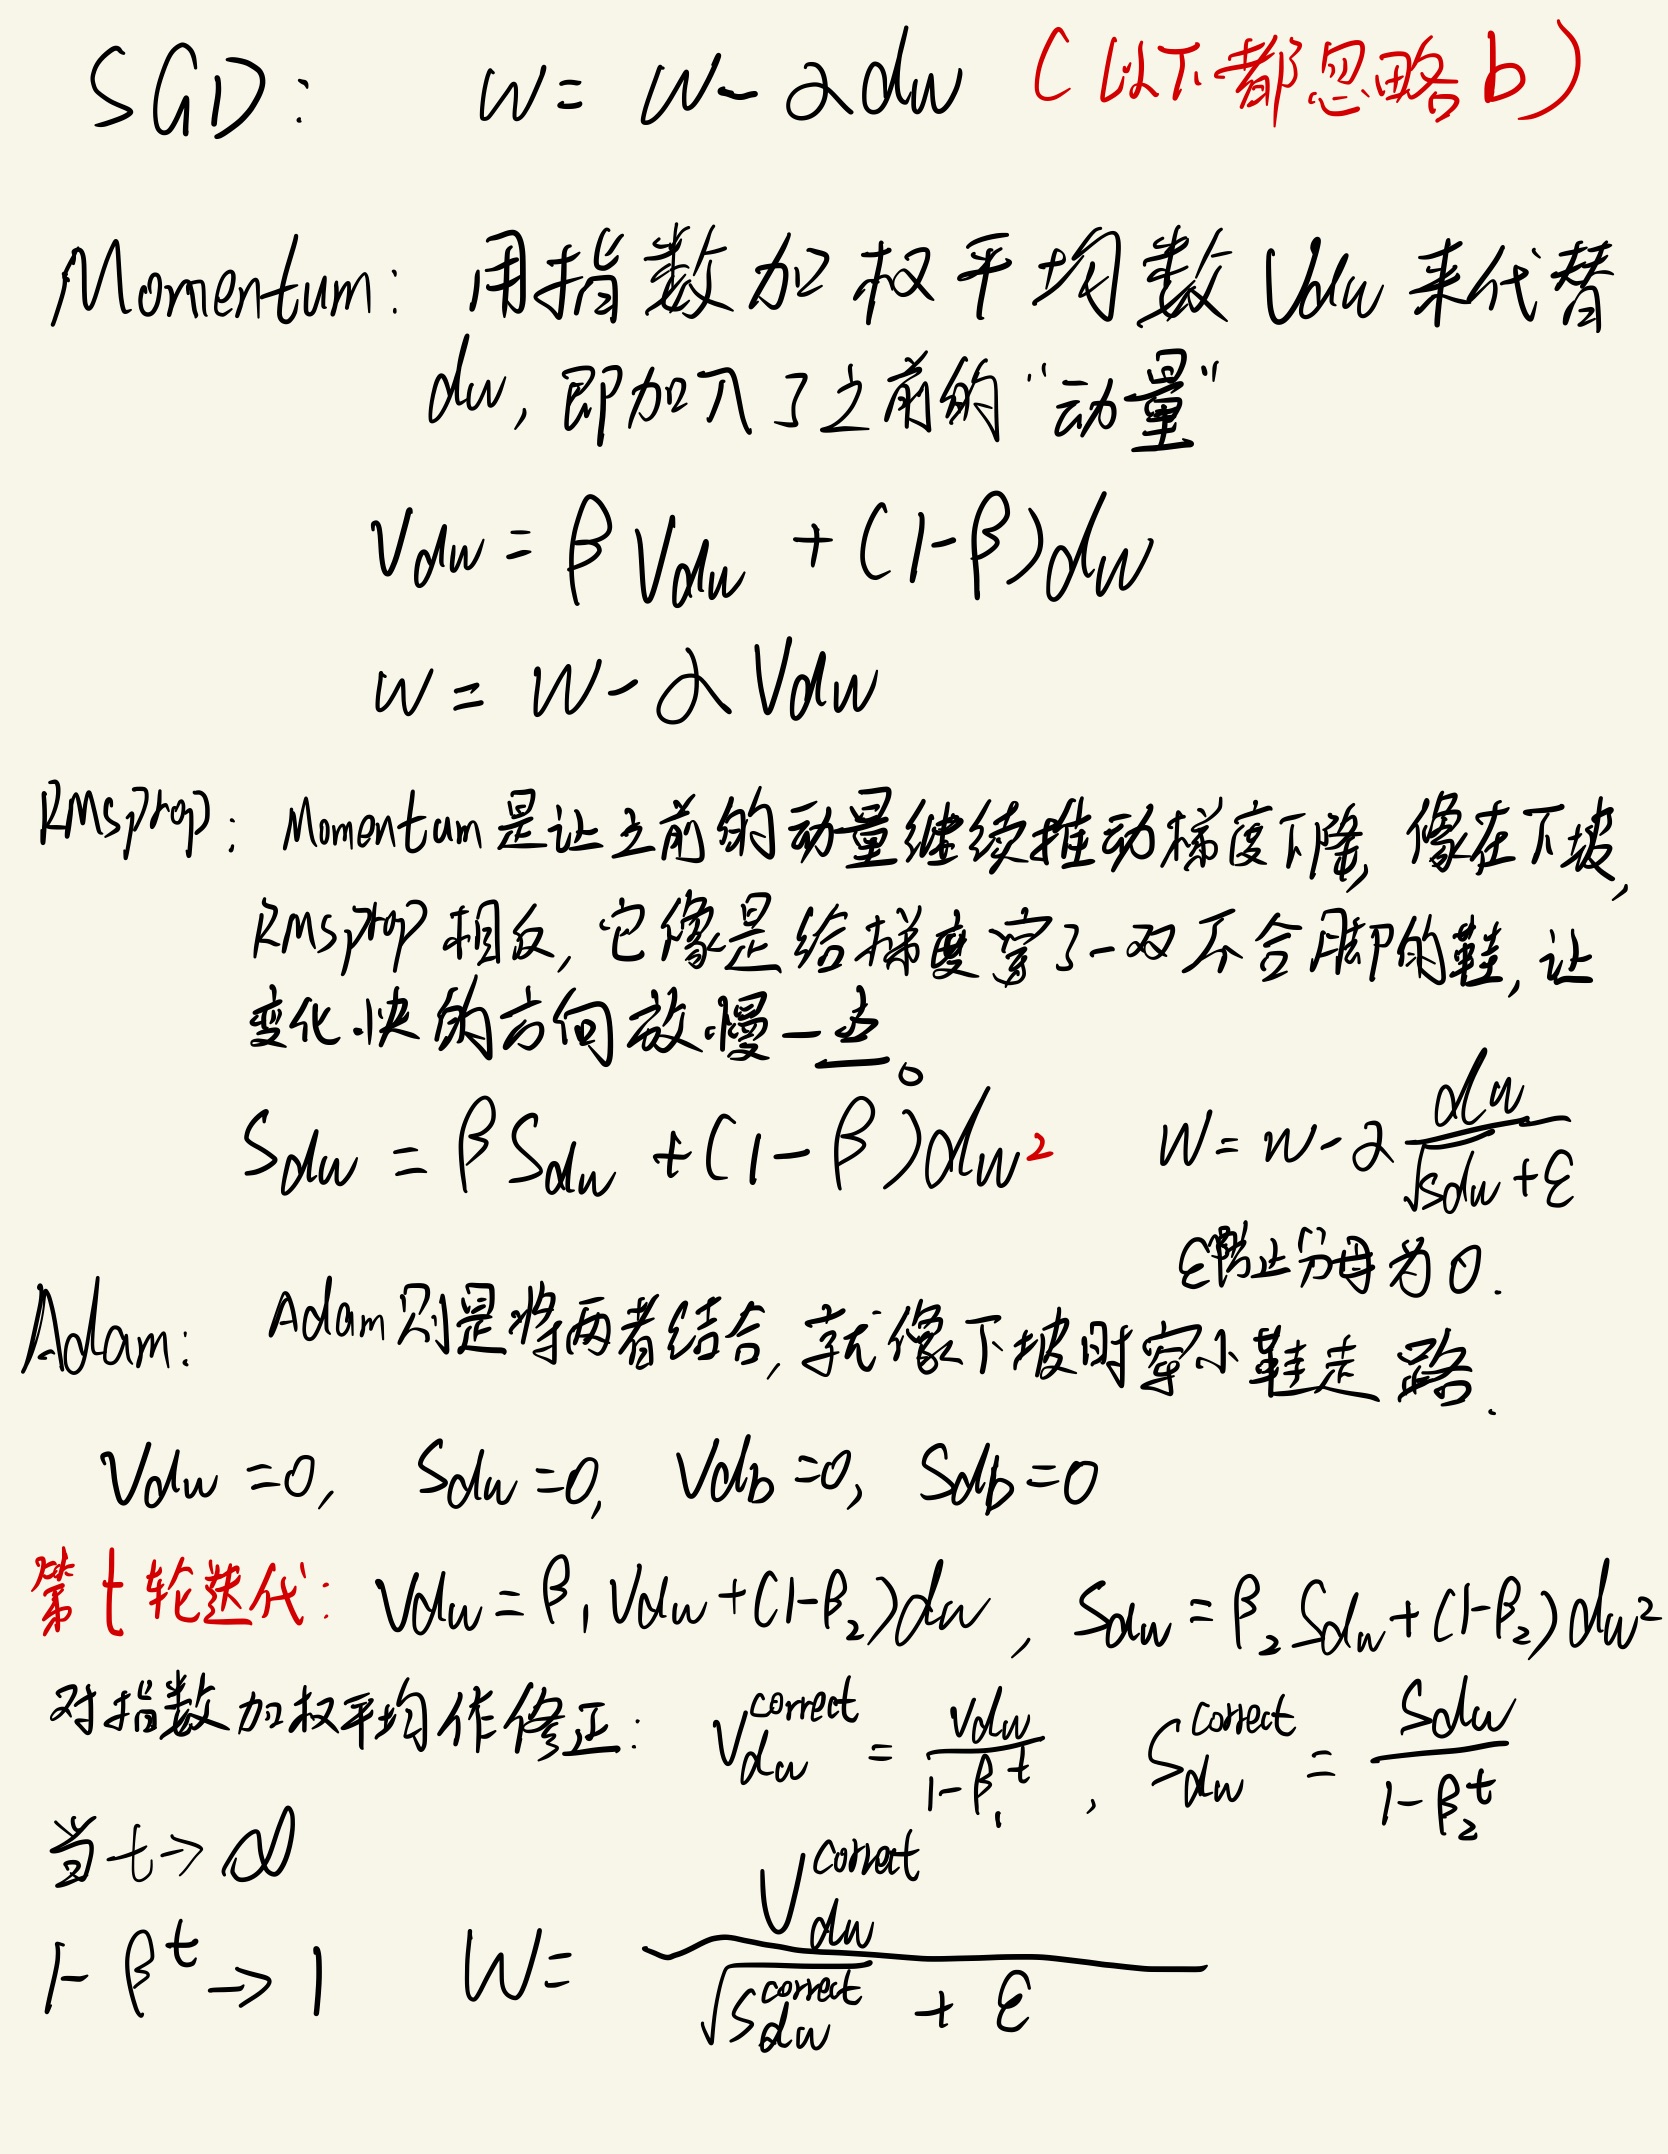 SGD: w = w - αdw (以下都忽略b)
Momentum: 用指数加权平均数 Vdw 来代替
dw, 即加入了之前的“动量”
Vdw = β Vdw + (1-β)dw
w = w - α Vdw
RMsprop: Momentum是让之前的动量继续推动梯度下降, 像在下坡,
RMsprop 相反, 它像是给梯度穿了一双不合脚的鞋, 让
变化快的方向放慢一些。
Sdw = β Sdw + (1-β)dw² w = w - α dw/(√Sdw + ε)
ε防止分母为0.
Adam: Adam则是将两者结合, 就像下坡时穿小鞋走路.
Vdw = 0, Sdw = 0, Vdb = 0, Sdb = 0
第t轮迭代: Vdw = β₁ Vdw + (1-β₂)dw, Sdw = β₂ Sdw + (1-β₂)dw²
对指数加权平均作修正: Vdw^correct = Vdw/(1-β₁^t), Sdw^correct = Sdw/(1-β₂^t)
当t→∞
1-β^t → 1 W = Vdw^correct/(√Sdw^correct + ε)